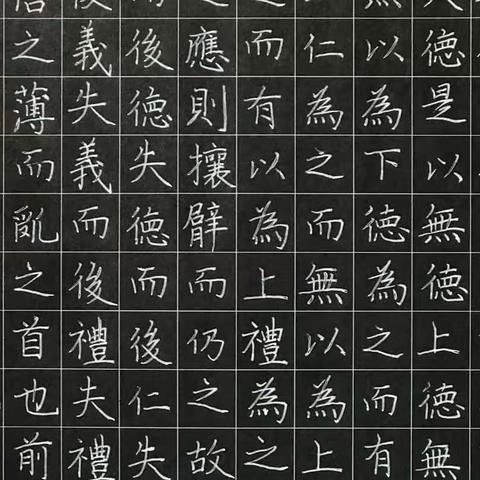 德是以無德上德無
以為下德為之而有
仁為之而無以為上
而有以為上禮為之
應則攘臂而仍之故
後德失德而後仁失
義失義而後禮夫禮
之薄而亂之首也前